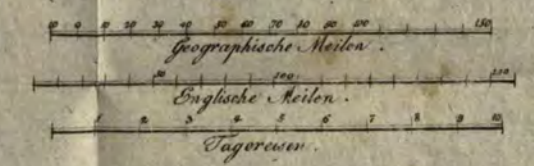 10 0 10 20 30 40 50 60 70 80 90 100 150
Geographische Meilen.
50 100
Englische Meilen.
1 2 3 4 5 6 7 8 9 10
Tagereisen.